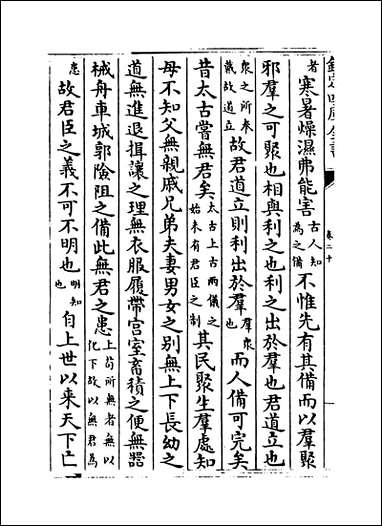 欽定四庫全書 卷二十
者寒暑燥濕弗能害古人知為之備不惟先有其備而以羣聚
邪羣之可聚也相與利之也利之出於羣也君道立也
衆之所奉戴故道立故君道立則利出於羣羣衆也而人備可完矣
昔太古嘗無君矣太古上古兩儀之始未有君臣之制其民聚生羣處知
母不知父無親戚兄弟夫妻男女之別無上下長幼之
道無進退揖讓之理無衣服履帶宮室畜積之便無器
械舟車城郭險阻之備此無君之患上苟所無者無以化下故以無君為
患故君臣之義不可不明也明知也自上世以來天下亡